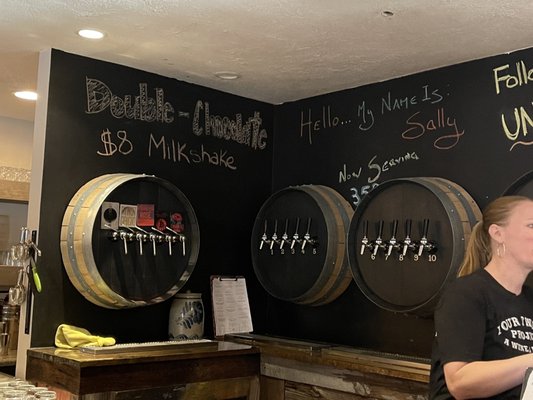 Double-Chocolate
$8 Milkshake
Hello... My Name Is:
Sally
Now Serving
Follo
UN
1 2 3 4 5
6 7 8 9 10